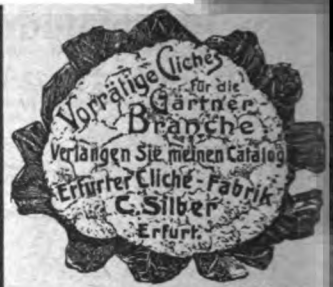 Vorrätige Cliches
für die
Gärtner
Branche
Verlangen Sie meinen Catalog
Erfurter Cliché-Fabrik
C. Silber
Erfurt.